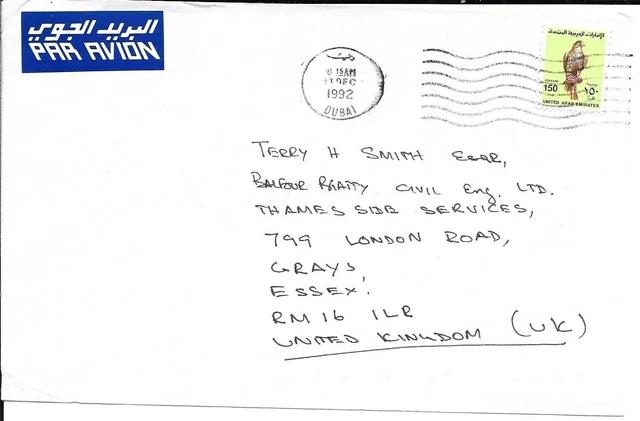 البريد الجوي
PAR AVION
دبي
15AM
13 DEC
1992
DUBAI
الإمارات العربية المتحدة
150
١٥٠
UNITED ARAB EMIRATES
TERRY H SMITH ESQR,
BALFOUR BEATTY CIVIL Eng. LTD.
THAMES SIDE SERVICES,
799 LONDON ROAD,
GRAYS,
ESSEX.
RM16 1LR
UNITED KINGDOM (UK)